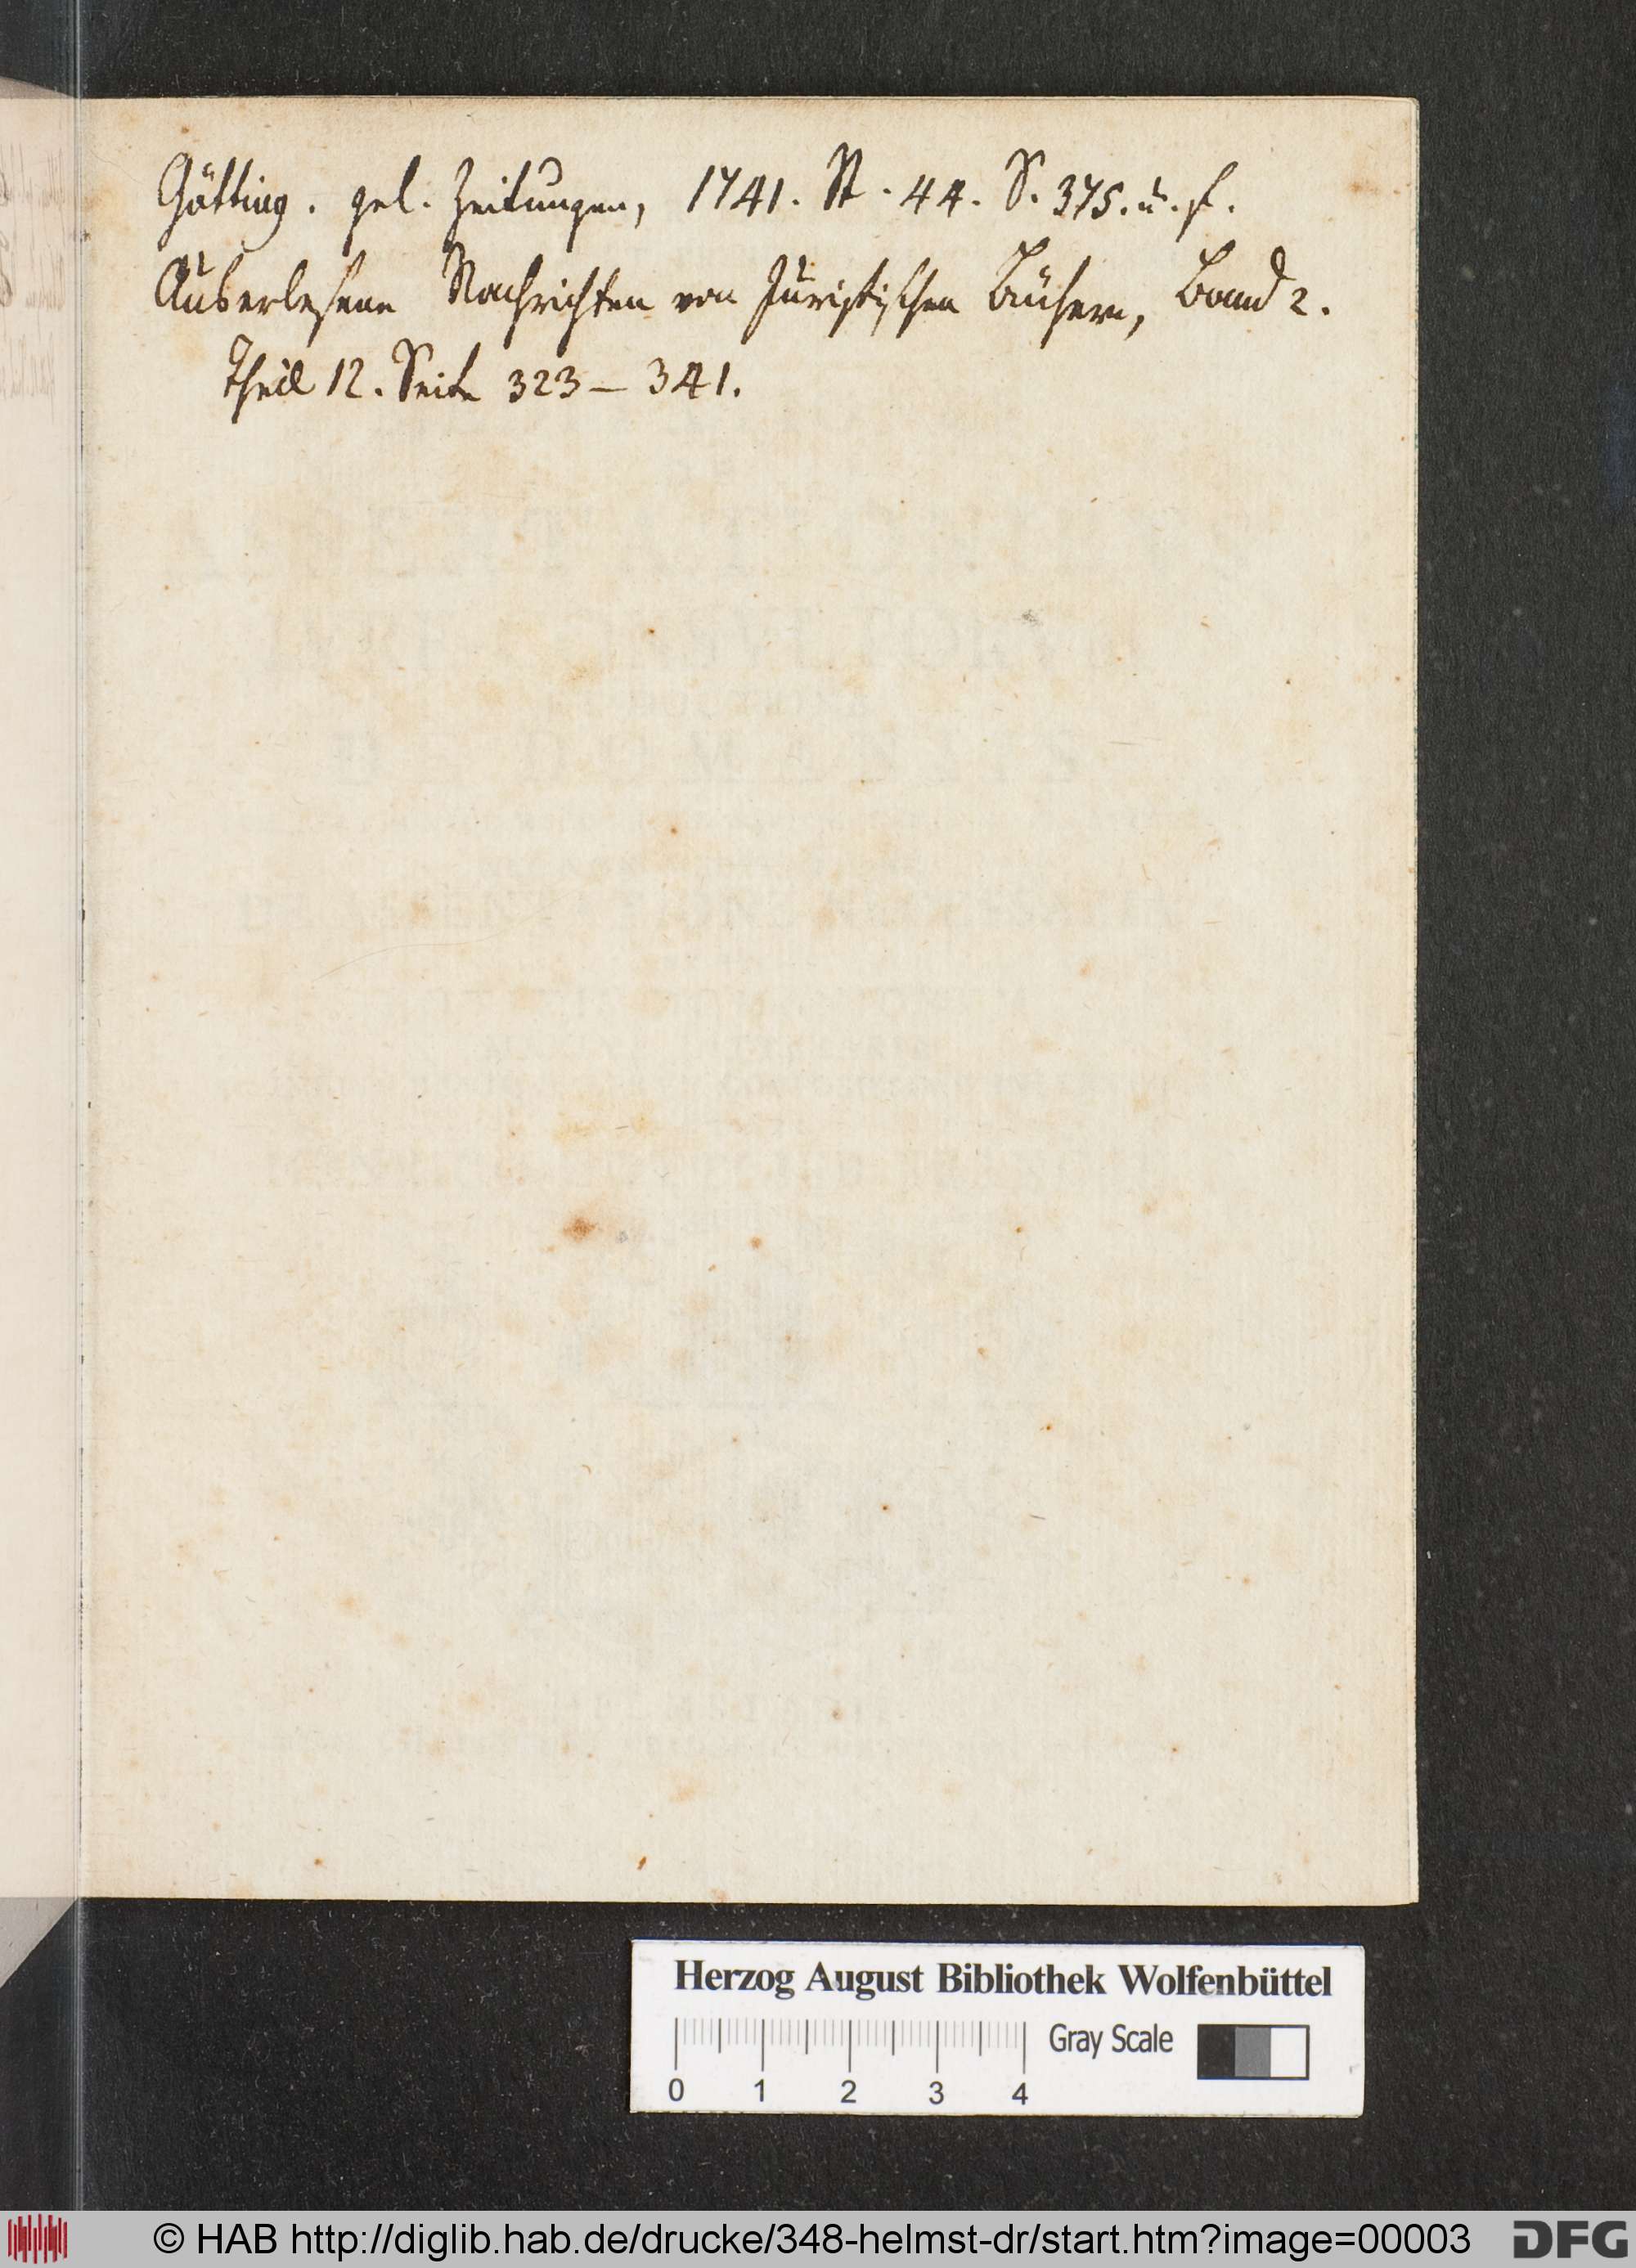 Götting. gel. Zeitungen, 1741. St. 44. S. 375. u. f.
Auserlesene Nachrichten von Juristischen Büchern, Band 2.
Theil 12. Seite 323 – 341.
Herzog August Bibliothek Wolfenbüttel
Gray Scale
0 1 2 3 4
© HAB http://diglib.hab.de/drucke/348-helmst-dr/start.htm?image=00003
DFG